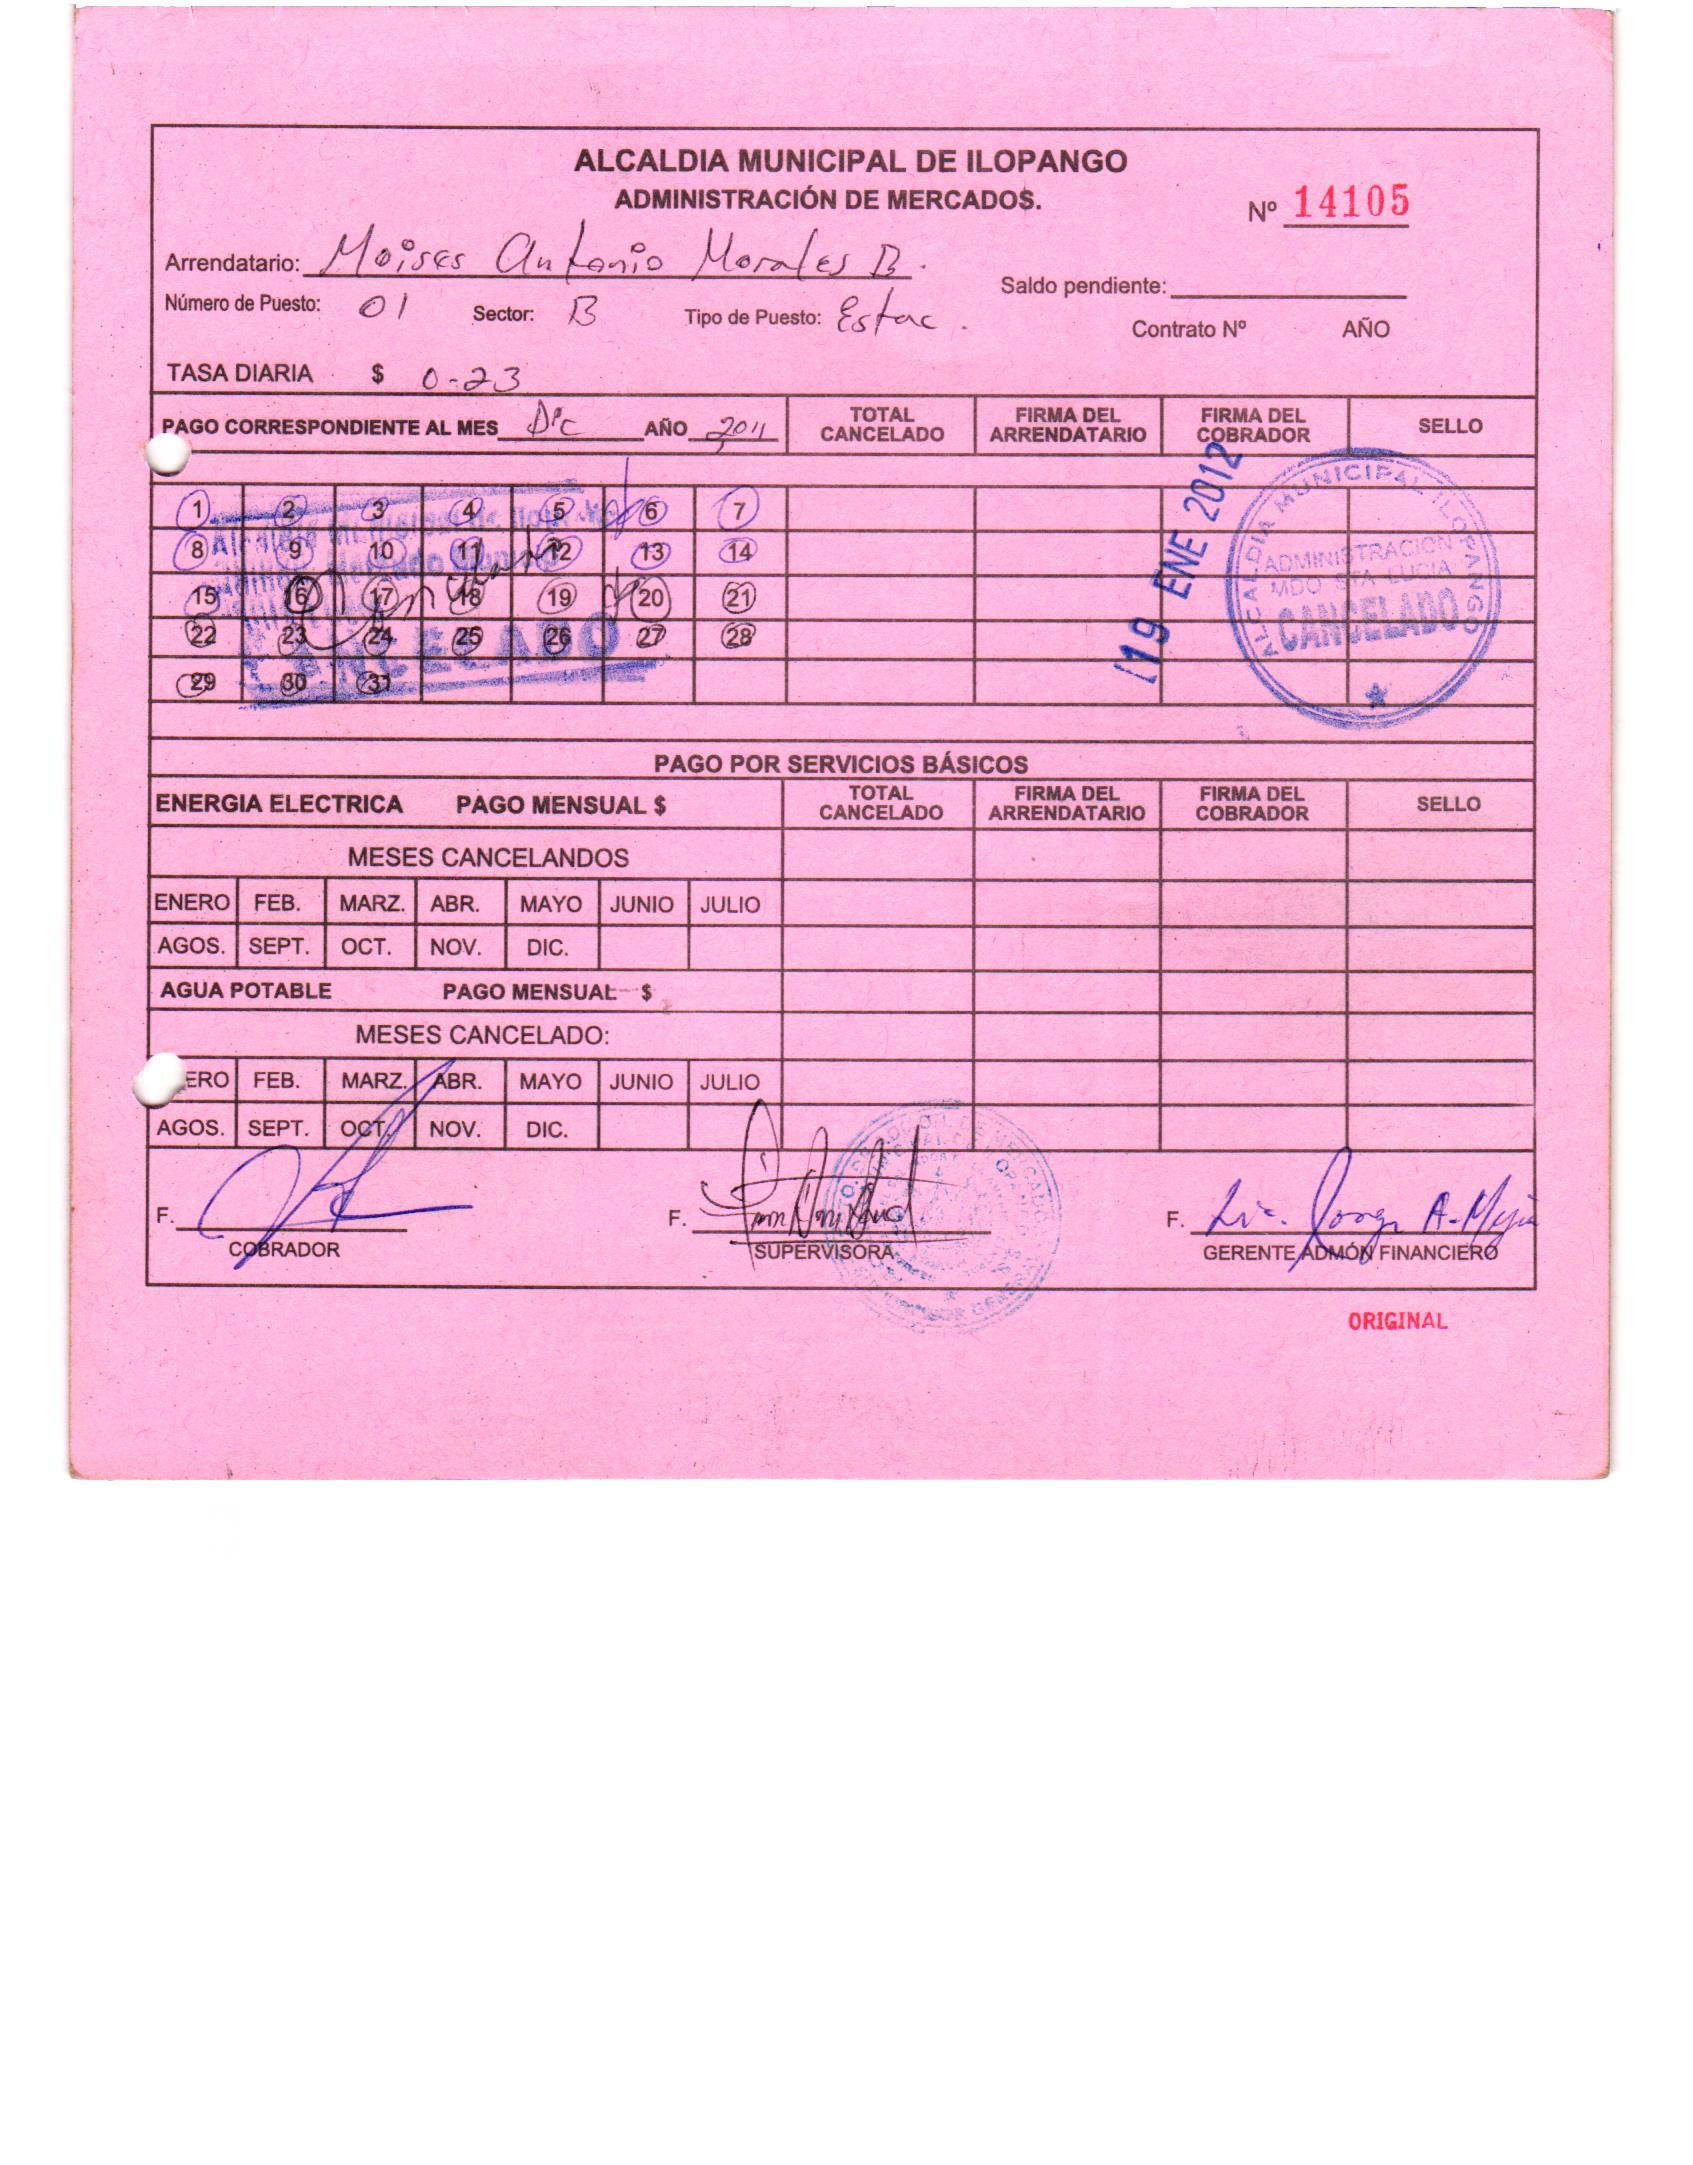 ALCALDIA MUNICIPAL DE ILOPANGO
ADMINISTRACIÓN DE MERCADOS.
Nº 14105
Arrendatario: Moises Antonio Morales B.
Saldo pendiente:
Número de Puesto: 01 Sector: B Tipo de Puesto: Estac.
Contrato Nº AÑO
TASA DIARIA $ 0-23
PAGO CORRESPONDIENTE AL MES Dic AÑO 2011 TOTAL CANCELADO FIRMA DEL ARRENDATARIO FIRMA DEL COBRADOR SELLO
1 2 3 4 5 6 7
8 9 10 11 12 13 14
15 16 17 18 19 20 21
22 23 24 25 26 27 28
29 30 31
CANCELADO
19 ENE 2012
ALCALDIA MUNICIPAL ILOPANGO
ADMINISTRACION
MDO STA LUCIA
CANCELADO
PAGO POR SERVICIOS BÁSICOS
ENERGIA ELECTRICA PAGO MENSUAL $ TOTAL CANCELADO FIRMA DEL ARRENDATARIO FIRMA DEL COBRADOR SELLO
MESES CANCELANDOS
ENERO FEB. MARZ. ABR. MAYO JUNIO JULIO
AGOS. SEPT. OCT. NOV. DIC.
AGUA POTABLE PAGO MENSUAL $
MESES CANCELADO:
ERO FEB. MARZ. ABR. MAYO JUNIO JULIO
AGOS. SEPT. OCT. NOV. DIC.
F. F. F. Lic. Jorge A. Mejia
COBRADOR SUPERVISORA GERENTE ADMÓN FINANCIERO
ORIGINAL